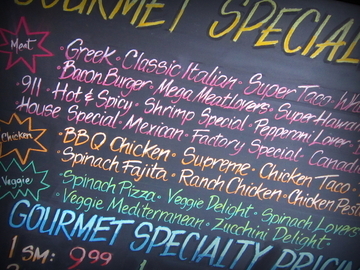 GOURMET SPECIAL
Meat
Greek • Classic Italian • Super Taco •
Bacon Burger • Mega Meatlovers •
911 • Hot & Spicy • Shrimp Special • Pepperoni Lover
House Special • Mexican • Factory Special •
Chicken
BBQ Chicken • Supreme • Chicken Taco
Spinach Fajita • Ranch Chicken • Chicken Pest
Veggie
Spinach Pizza • Veggie Delight • Spinach Lovers
Veggie Mediterranean • Zucchini Delight •
GOURMET SPECIALTY
1 SM: 9.99